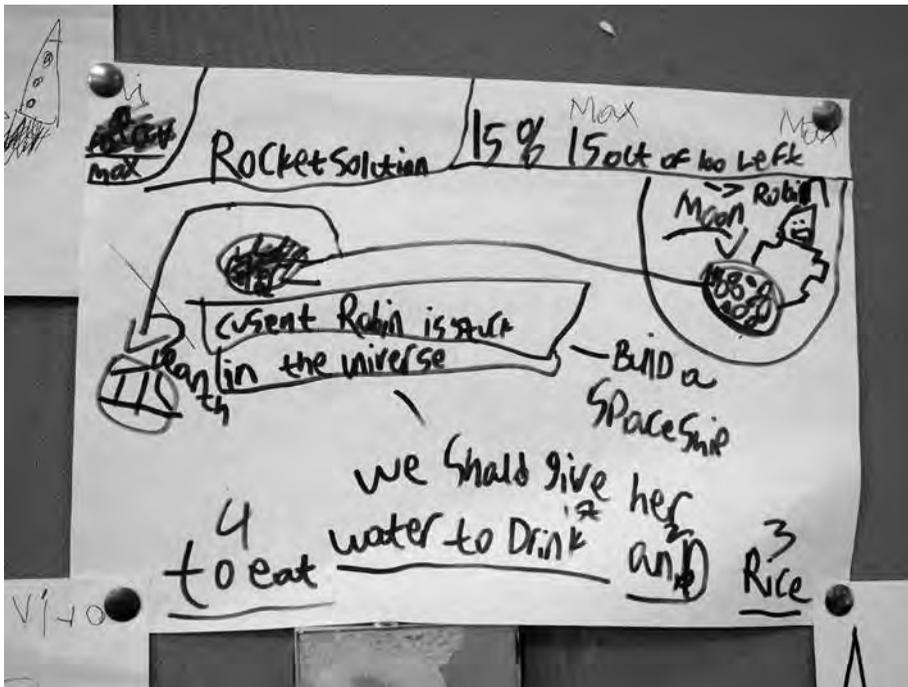 max
Rocket Solution
15% 15 out of 100 Left
Max
Max
Moon -> Robin
cusent Robin is stuck
in the universe
earth
Build a
Spaceship
we Shald give her
water to Drink 1st and 2 Rice 3
to eat 4
Viro